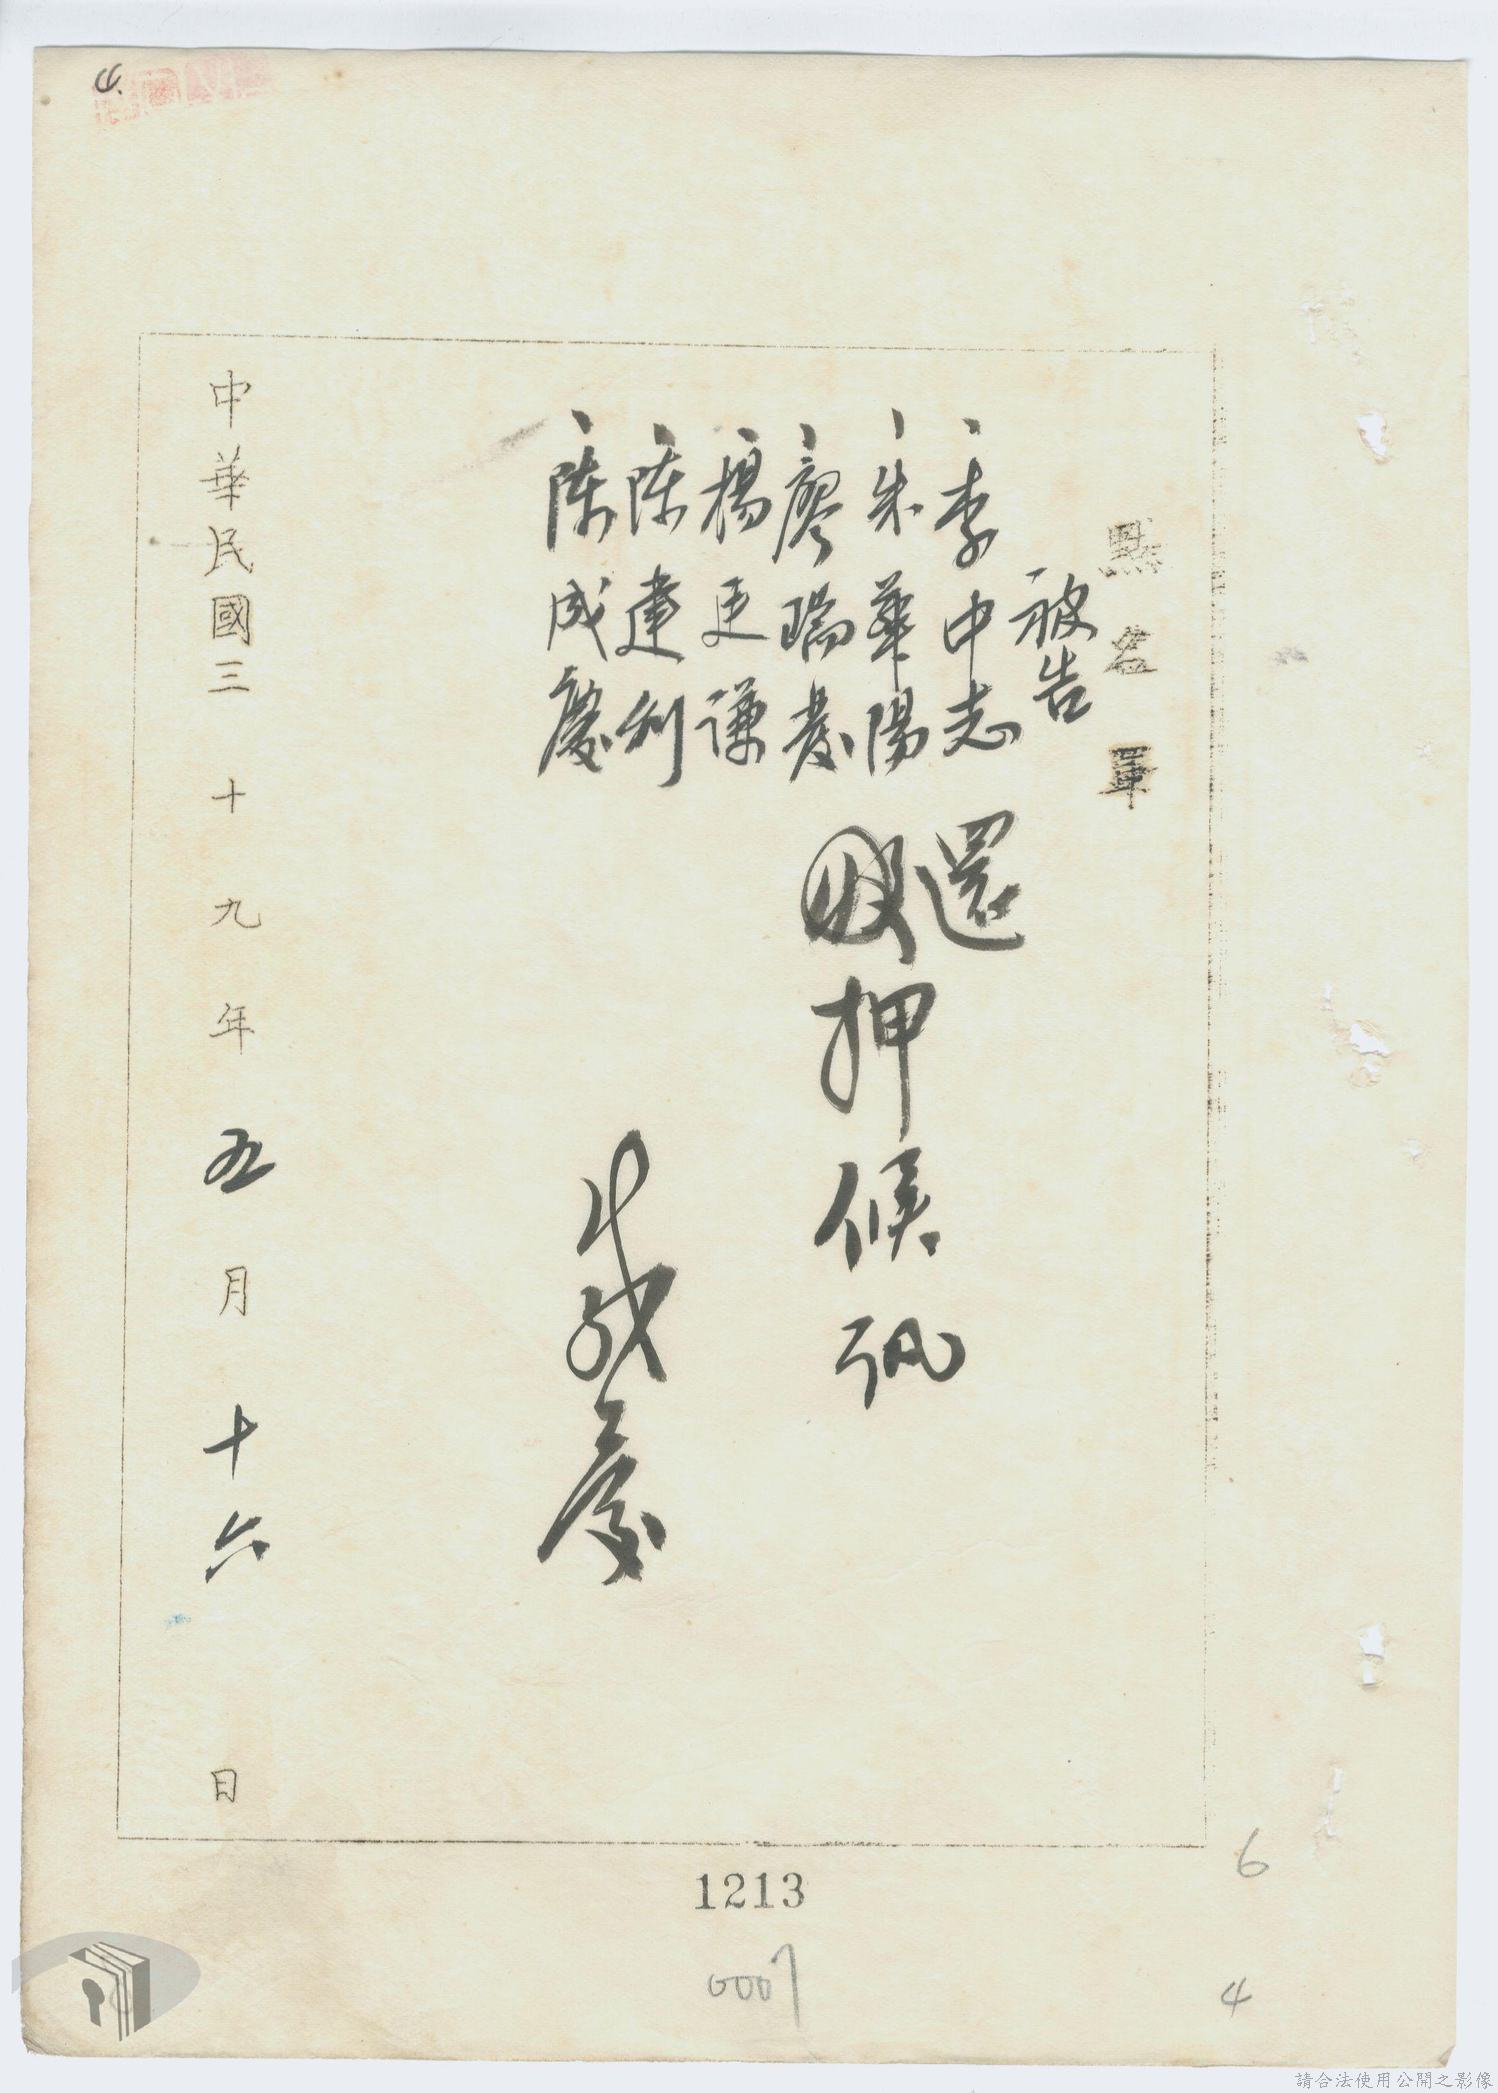 點名單
被告
李中志
朱華陽
廖瑞發
楊廷謙
陳建利
陳成慶
還押候訊
中華民國三十九年五月十六日
1213
0007
6
4
4.
請合法使用公開之影像